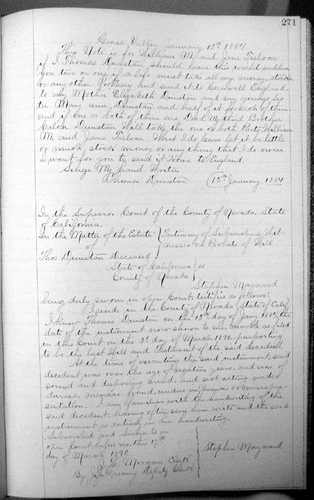 271
Grass Valley January 15th 1884
This Note is for William M and Jane Treloar
if I Thomas Dunstan should leave this world sudden
you two or one if a life must take all my money, stocks
or any other Property and send it to Cornwall England
to my Mother Elizabeth Dunstan and my youngest Sis
ter Mary Ann Dunstan and half of it for each of them
and if one or both of them are Dead My third Brother
Caleb Dunstan Will take the one or both Parts William
M and Jane Treloar What I do leave let it be little
or much stock money or any thing that I do own
I want for you to send it Home to England.
My hand writen
Thomas Dunstan (15th January 1884
In the Superior Court of the County of Nevada, State
of California.
In the Matter of the Estate Testimony of Subscribing Wit-
of ness on Probate of Will
Thos Dunstan Deceased
State of California ss
County of Nevada
Stephen Maynard
being duly sworn in open Court, testifies as follows
I reside in the County of Nevada State of Calif
I knew Thomas Dunstan on the 15th day of Jany 1884, the
date of the instrument now shown to me, marked as filed
in this Court on the 3d day of March 1890, purporting
to be the last Will and Testament of the said deceased,
At the time of executing the said instrument, said
decedent was over the age of eighteen years, and was of
sound and disposing mind, and not acting under
duress, menace, fraud, undue influence, or misrepre-
sentation. I am familiar with the handwriting of the
said decedent having often seen him write and the said
instrument is entirely in his handwriting.
Subscribed and Sworn to in
open Court before me this 17th
day of March 1890 Stephen Maynard
Morgan Clerk
By Deputy Clerk